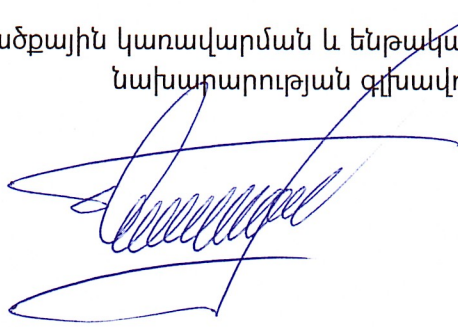 ածքային կառավարման և ենթակա
նախարարության գլխավո